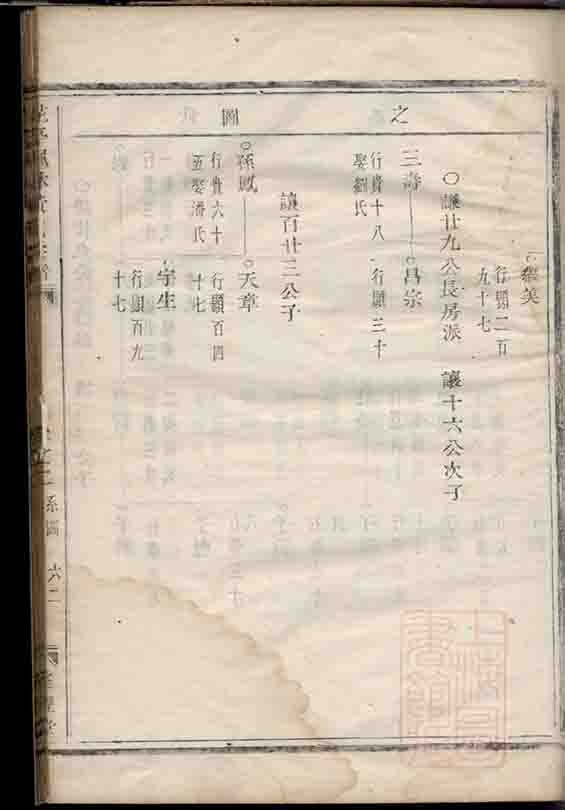 之
圖
繼美
行顯二百
九十七
○讓廿九公長房派 讓十六公次子
三壽
行貴十八
娶劉氏
昌宗
行顯三十
讓百廿三公子
孫鳳
行貴六十
五娶潘氏
天章
行顯百四
十七
宇生
行顯百九
十七
系圖
六二
上海圖
書館藏